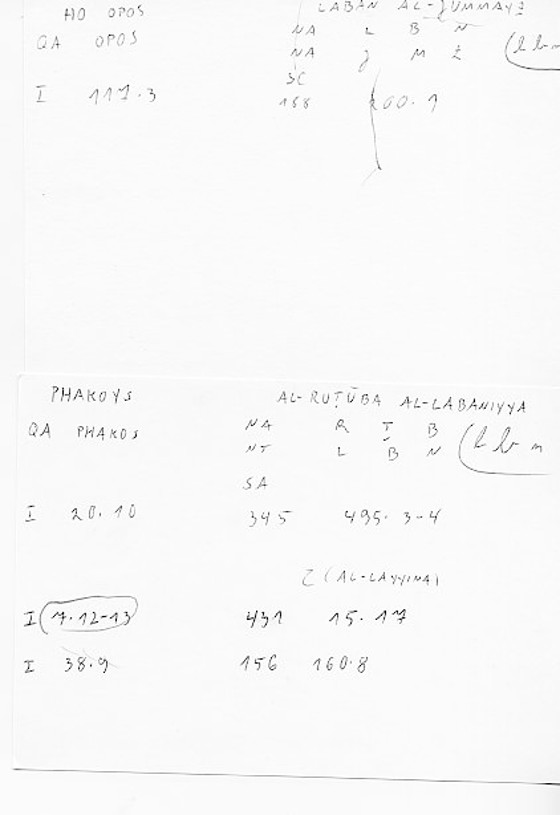 HO OPOS LABAN AL-ǦUMMAYZ
QA OPOS NA L B N
NA Ǧ M Z
SC
I 117.3 188 200.1
PHAKOYS AL-RUṬŪBA AL-LABANIYYA
QA PHAKOS NA R Ṭ B
NT L B N
SA
I 20.10 345 495.3-4
Z (AL-LAYYINA)
I 7.12-13 431 15.17
I 38.9 156 160.8